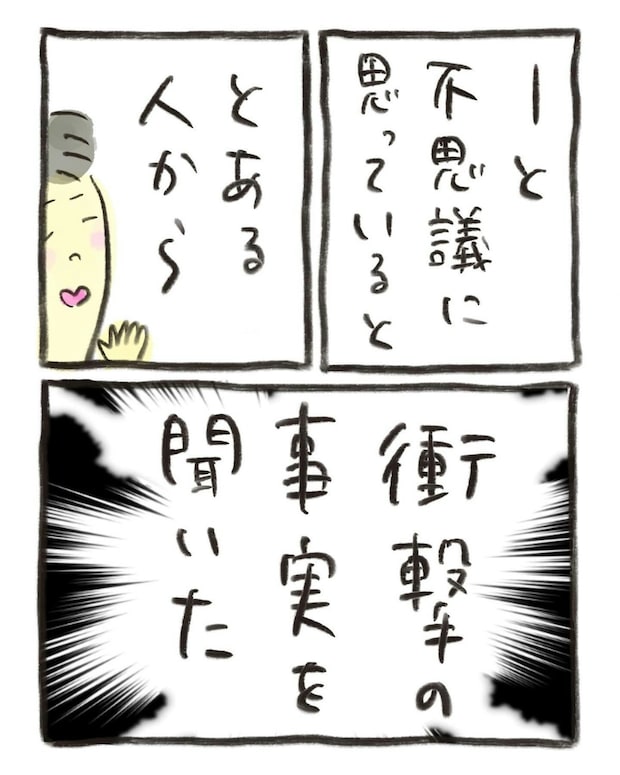 ーと
不思議に
思っていると
とある
人から
衝撃の
事実を
聞いた